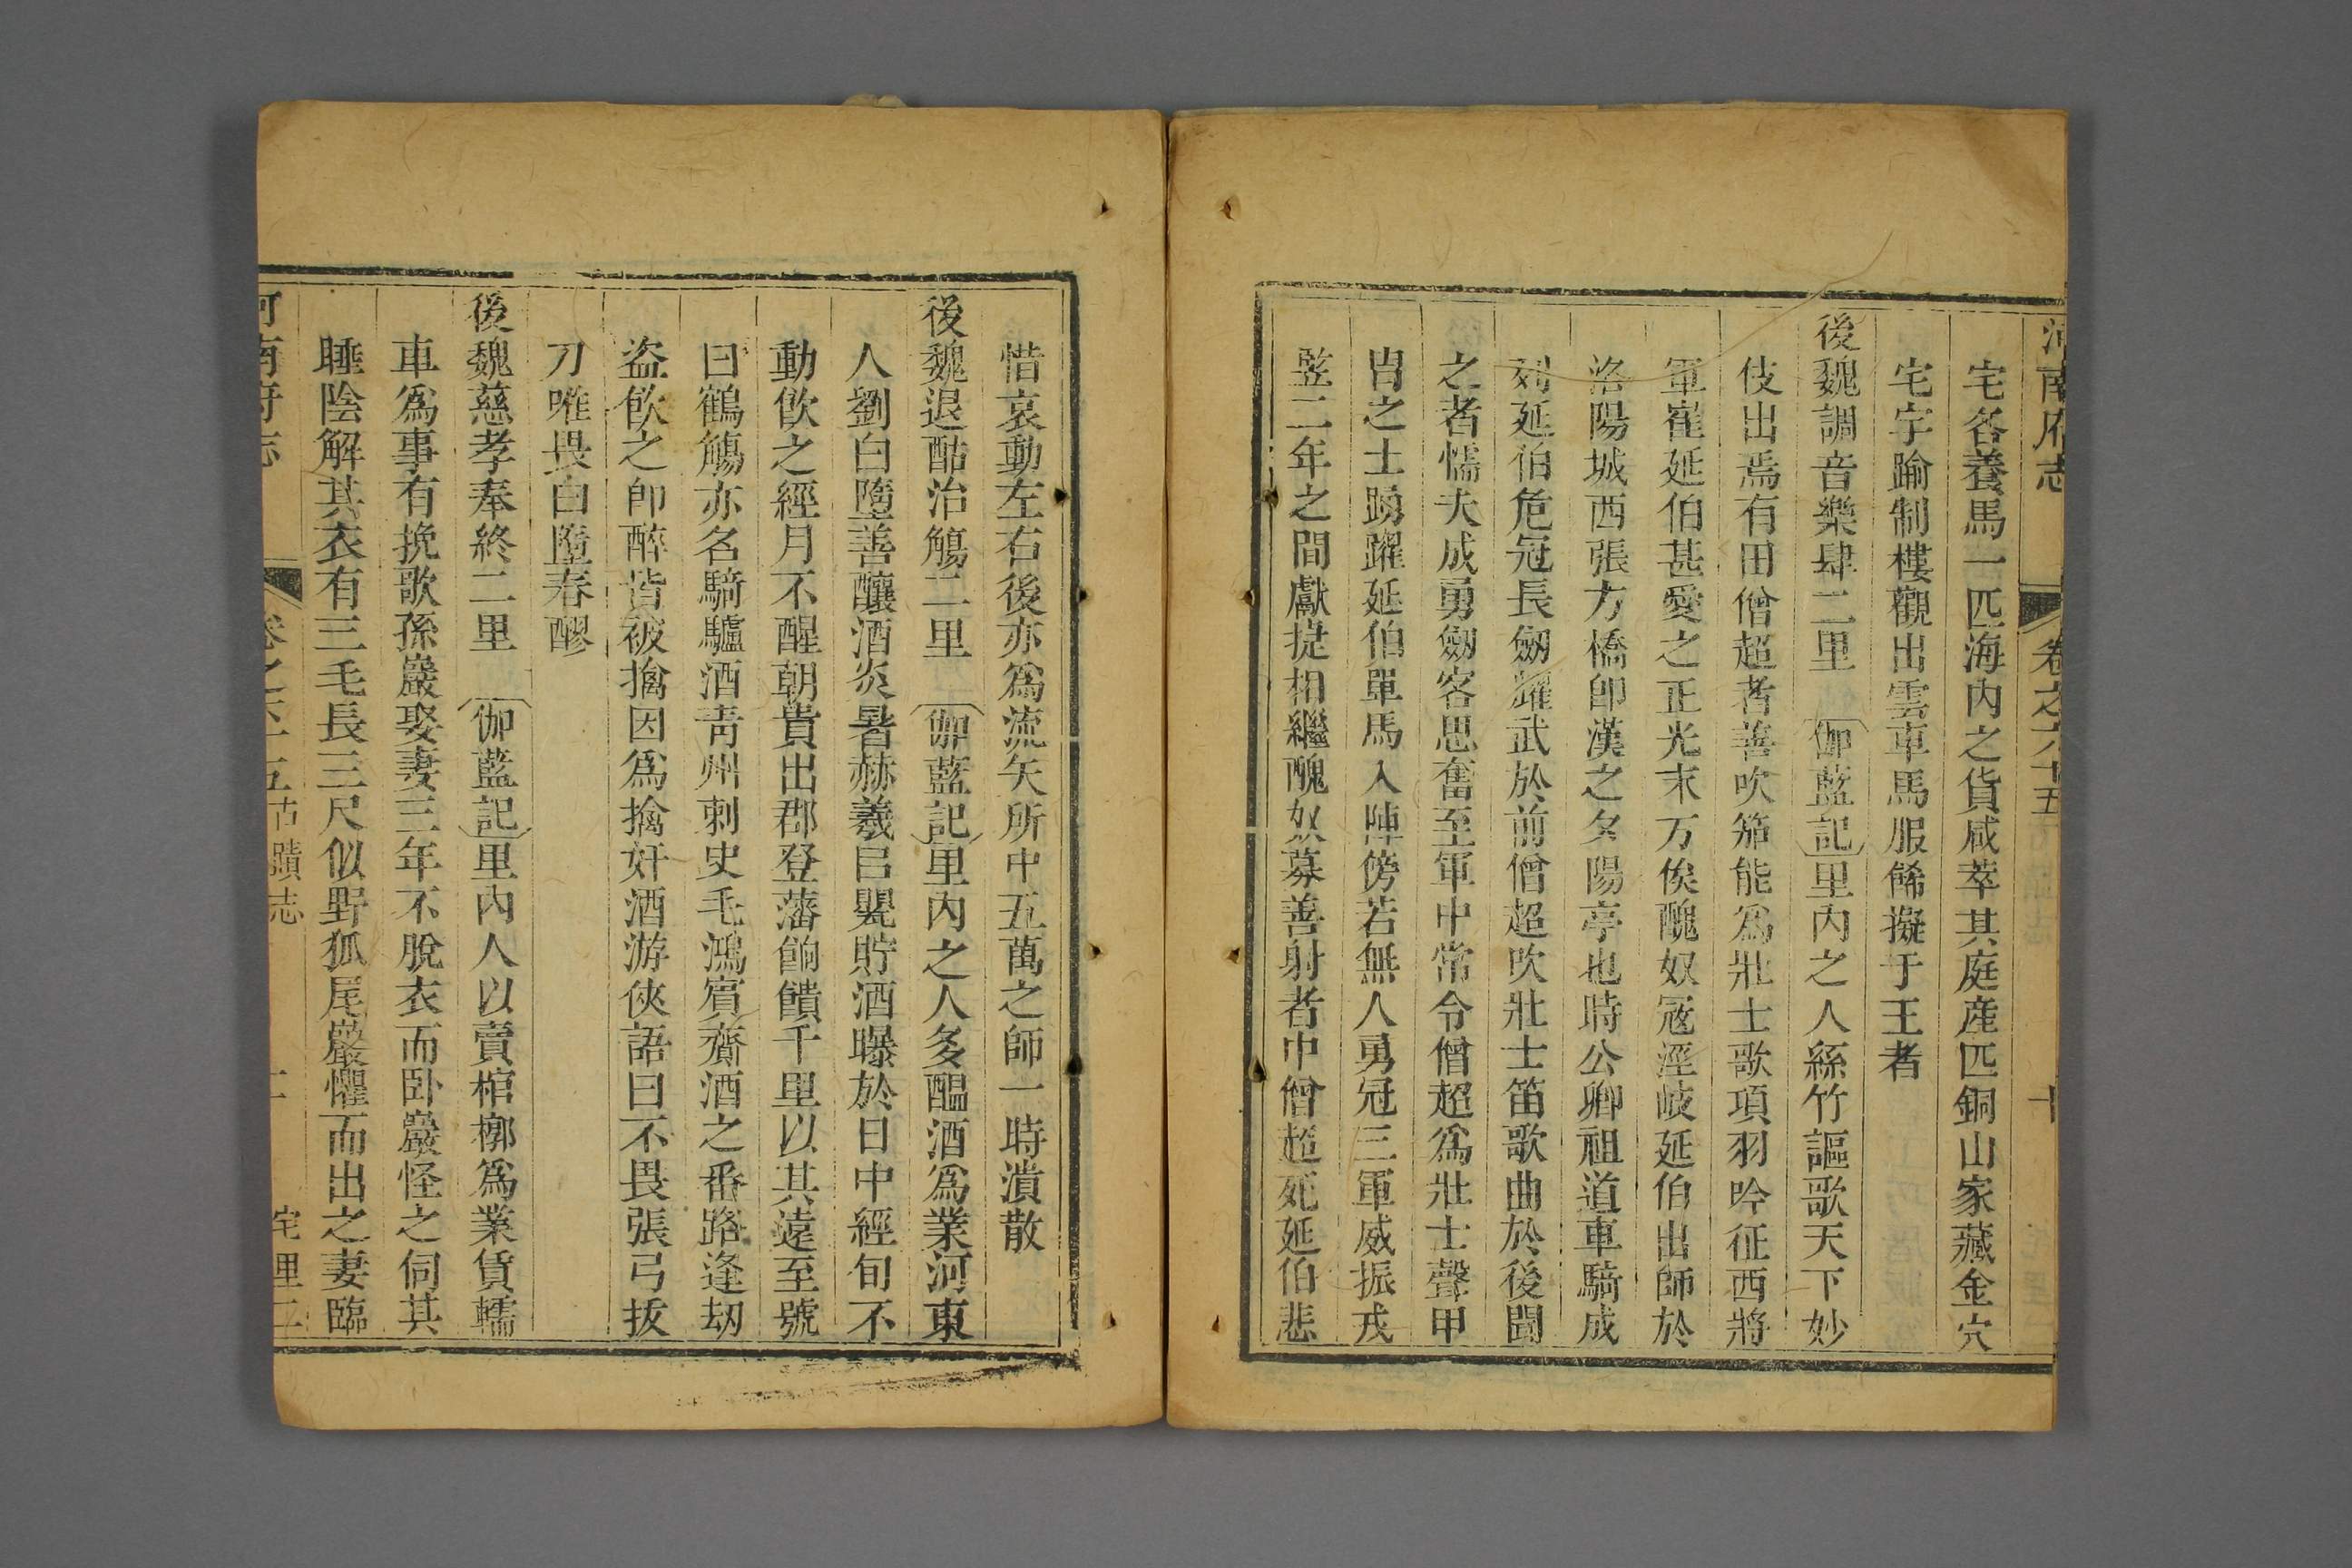 河南府志 卷之六十五 十
宅各養馬一匹海內之貨咸萃其庭産匹銅山家藏金穴
宅宇踰制樓觀出雲車馬服餙擬于王者
後魏調音樂肆二里 伽藍記里內之人絲竹謳歌天下妙
伎出焉有田僧超者善吹笳能爲壯士歌項羽吟征西將
軍崔延伯甚愛之正光末万俟醜奴寇涇岐延伯出師於
洛陽城西張方橋卽漢之夕陽亭也時公卿祖道車騎成
列延伯危冠長劒耀武於前僧超吹壯士笛歌曲於後聞
之者懦夫成勇劒客思奮至軍中常令僧超爲壯士聲甲
胄之士踴躍延伯單馬入陣傍若無人勇冠三軍威振戎
竪二年之間獻捷相繼醜奴募善射者中僧超死延伯悲
惜哀動左右後亦爲流矢所中五萬之師一時潰散
後魏退酤治觴二里 伽藍記里內之人多醖酒爲業河東
人劉白墮善釀酒炎暑赫羲巨甖貯酒曝於日中經旬不
動飮之經月不醒朝貴出郡登藩餉饋千里以其遠至號
曰鶴觴亦名騎驢酒靑州刺史毛鴻賓齎酒之番路逢刼
盗飮之卽醉皆被擒因爲擒奸酒游俠語曰不畏張弓拔
刀唯畏白墮春醪
後魏慈孝奉終二里 伽藍記里內人以賣棺槨爲業賃轜
車爲事有挽歌孫巖娶妻三年不脫衣而卧巖怪之伺其
睡陰解其衣有三毛長三尺似野狐尾巖懼而出之妻臨
河南府志 卷之六十五 古蹟志 十一 宅里二